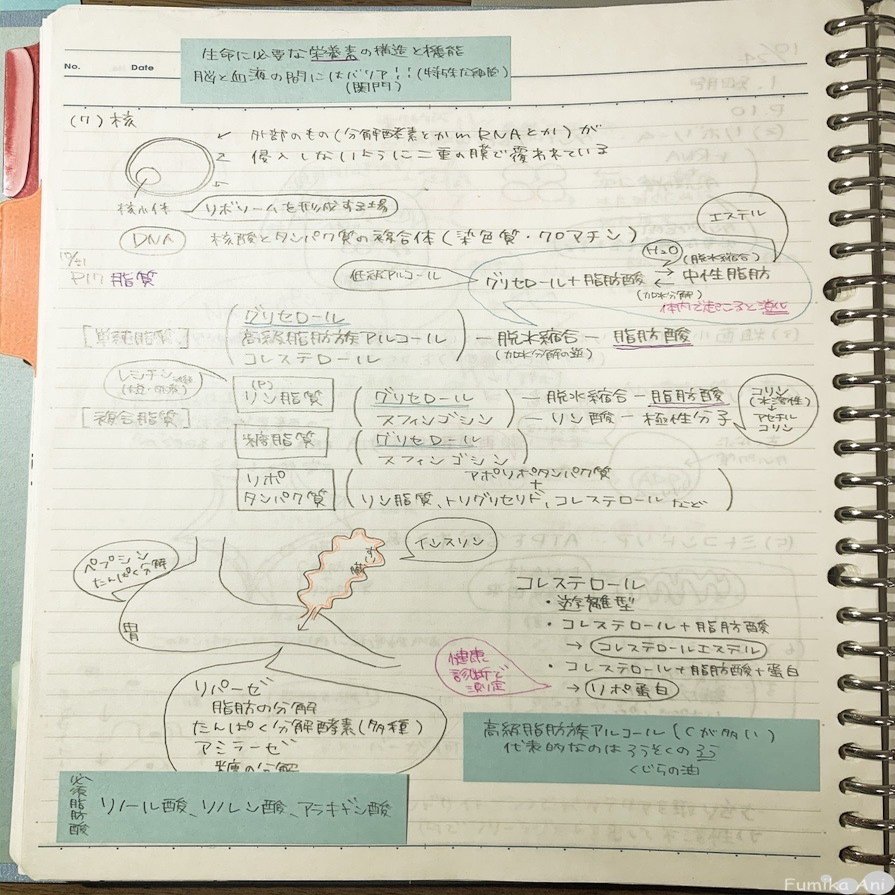 生命に必要な栄養素の構造と機能
脳と血液の間にはバリア!!(特殊な細胞)
(関門)
No.
Date
(7) 核
外部のもの(分解酵素とかmRNAとか)が
侵入しないように二重の膜で覆われている
核小体
リボソームを形成する場
DNA
核酸とタンパク質の複合体(染色質・クロマチン)
エステル
10/31
P17 脂質
低級アルコール
グリセロール+脂肪酸 ⇄ 中性脂肪
H₂O
(脱水縮合)
(加水分解)
体内で起こると消化
[単純脂質]
グリセロール
高級脂肪族アルコール
コレステロール
― 脱水縮合 ― 脂肪酸
(加水分解の逆)
レシチン
[複合脂質]
(P)
リン脂質
グリセロール
スフィンゴシン
― 脱水縮合 ― 脂肪酸
― リン酸 ― 極性分子
コリン
(水溶性)
↓
アセチル
コリン
糖脂質
グリセロール
スフィンゴシン
リポ
タンパク質
アポリポタンパク質
+
リン脂質、トリグリセリド、コレステロール など
ペプシン
たんぱく分解
胃
すい臓
インスリン
リパーゼ
脂肪の分解
たんぱく分解酵素(多種)
アミラーゼ
糖の分解
コレステロール
・遊離型
・コレステロール+脂肪酸
→ コレステロールエステル
・コレステロール+脂肪酸+蛋白
→ リポ蛋白
健康
診断で
測定
高級脂肪族アルコール (Cが多い)
代表的なのはろうそくのろう
くじらの油
必須脂肪酸
リノール酸、リノレン酸、アラキドン酸
Fumika Ani